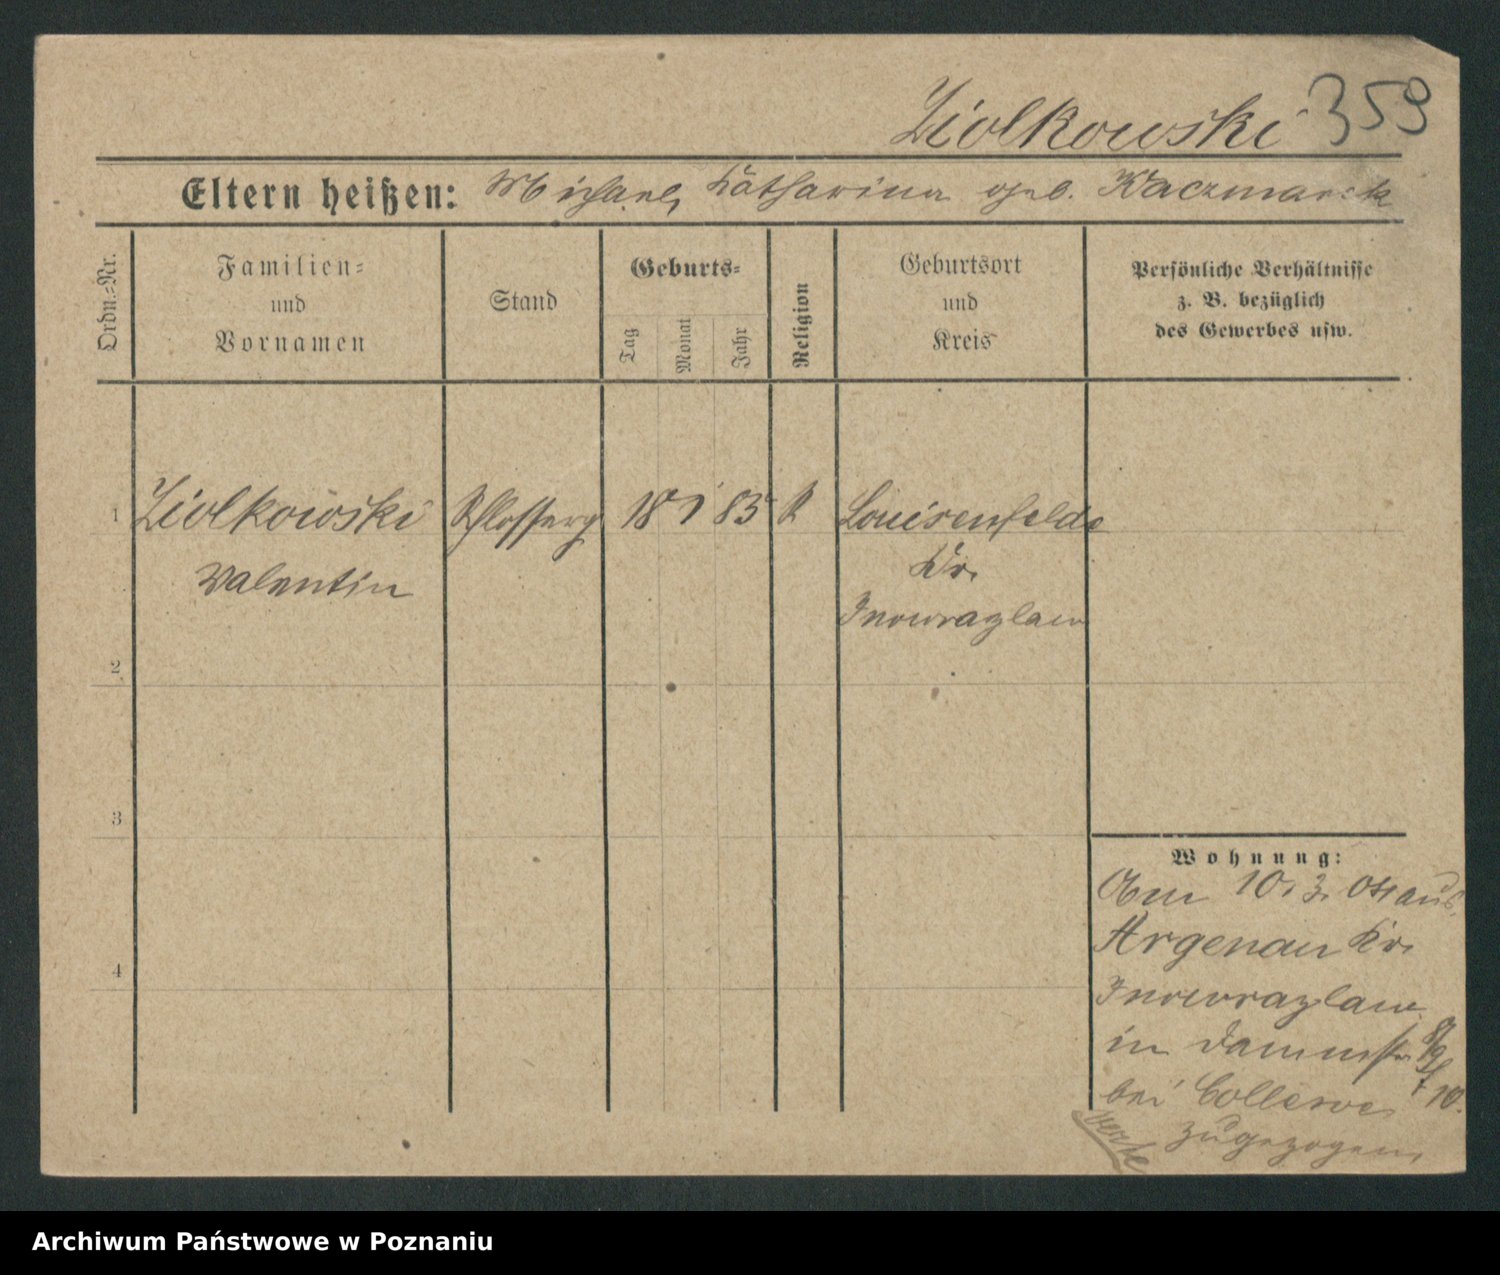 Ziolkowski 359
Eltern heißen: Michael, Katharina geb. Kaczmarek
Ordn.-Nr.
Familien-
und
Vornamen
Stand
Geburts-
Tag
Monat
Jahr
Religion
Geburtsort
und
Kreis
Persönliche Verhältnisse
z. B. bezüglich
des Gewerbes usw.
1 Ziolkowski Schlosserg 18 1 83 k Louisenfelde
Valentin Kr.
Inowrazlaw
2
3
4
Wohnung:
Am 10.3. 04 aus
Argenau Kr.
Inowrazlaw
in Dammstr.
bei
zugezogen
Archiwum Państwowe w Poznaniu